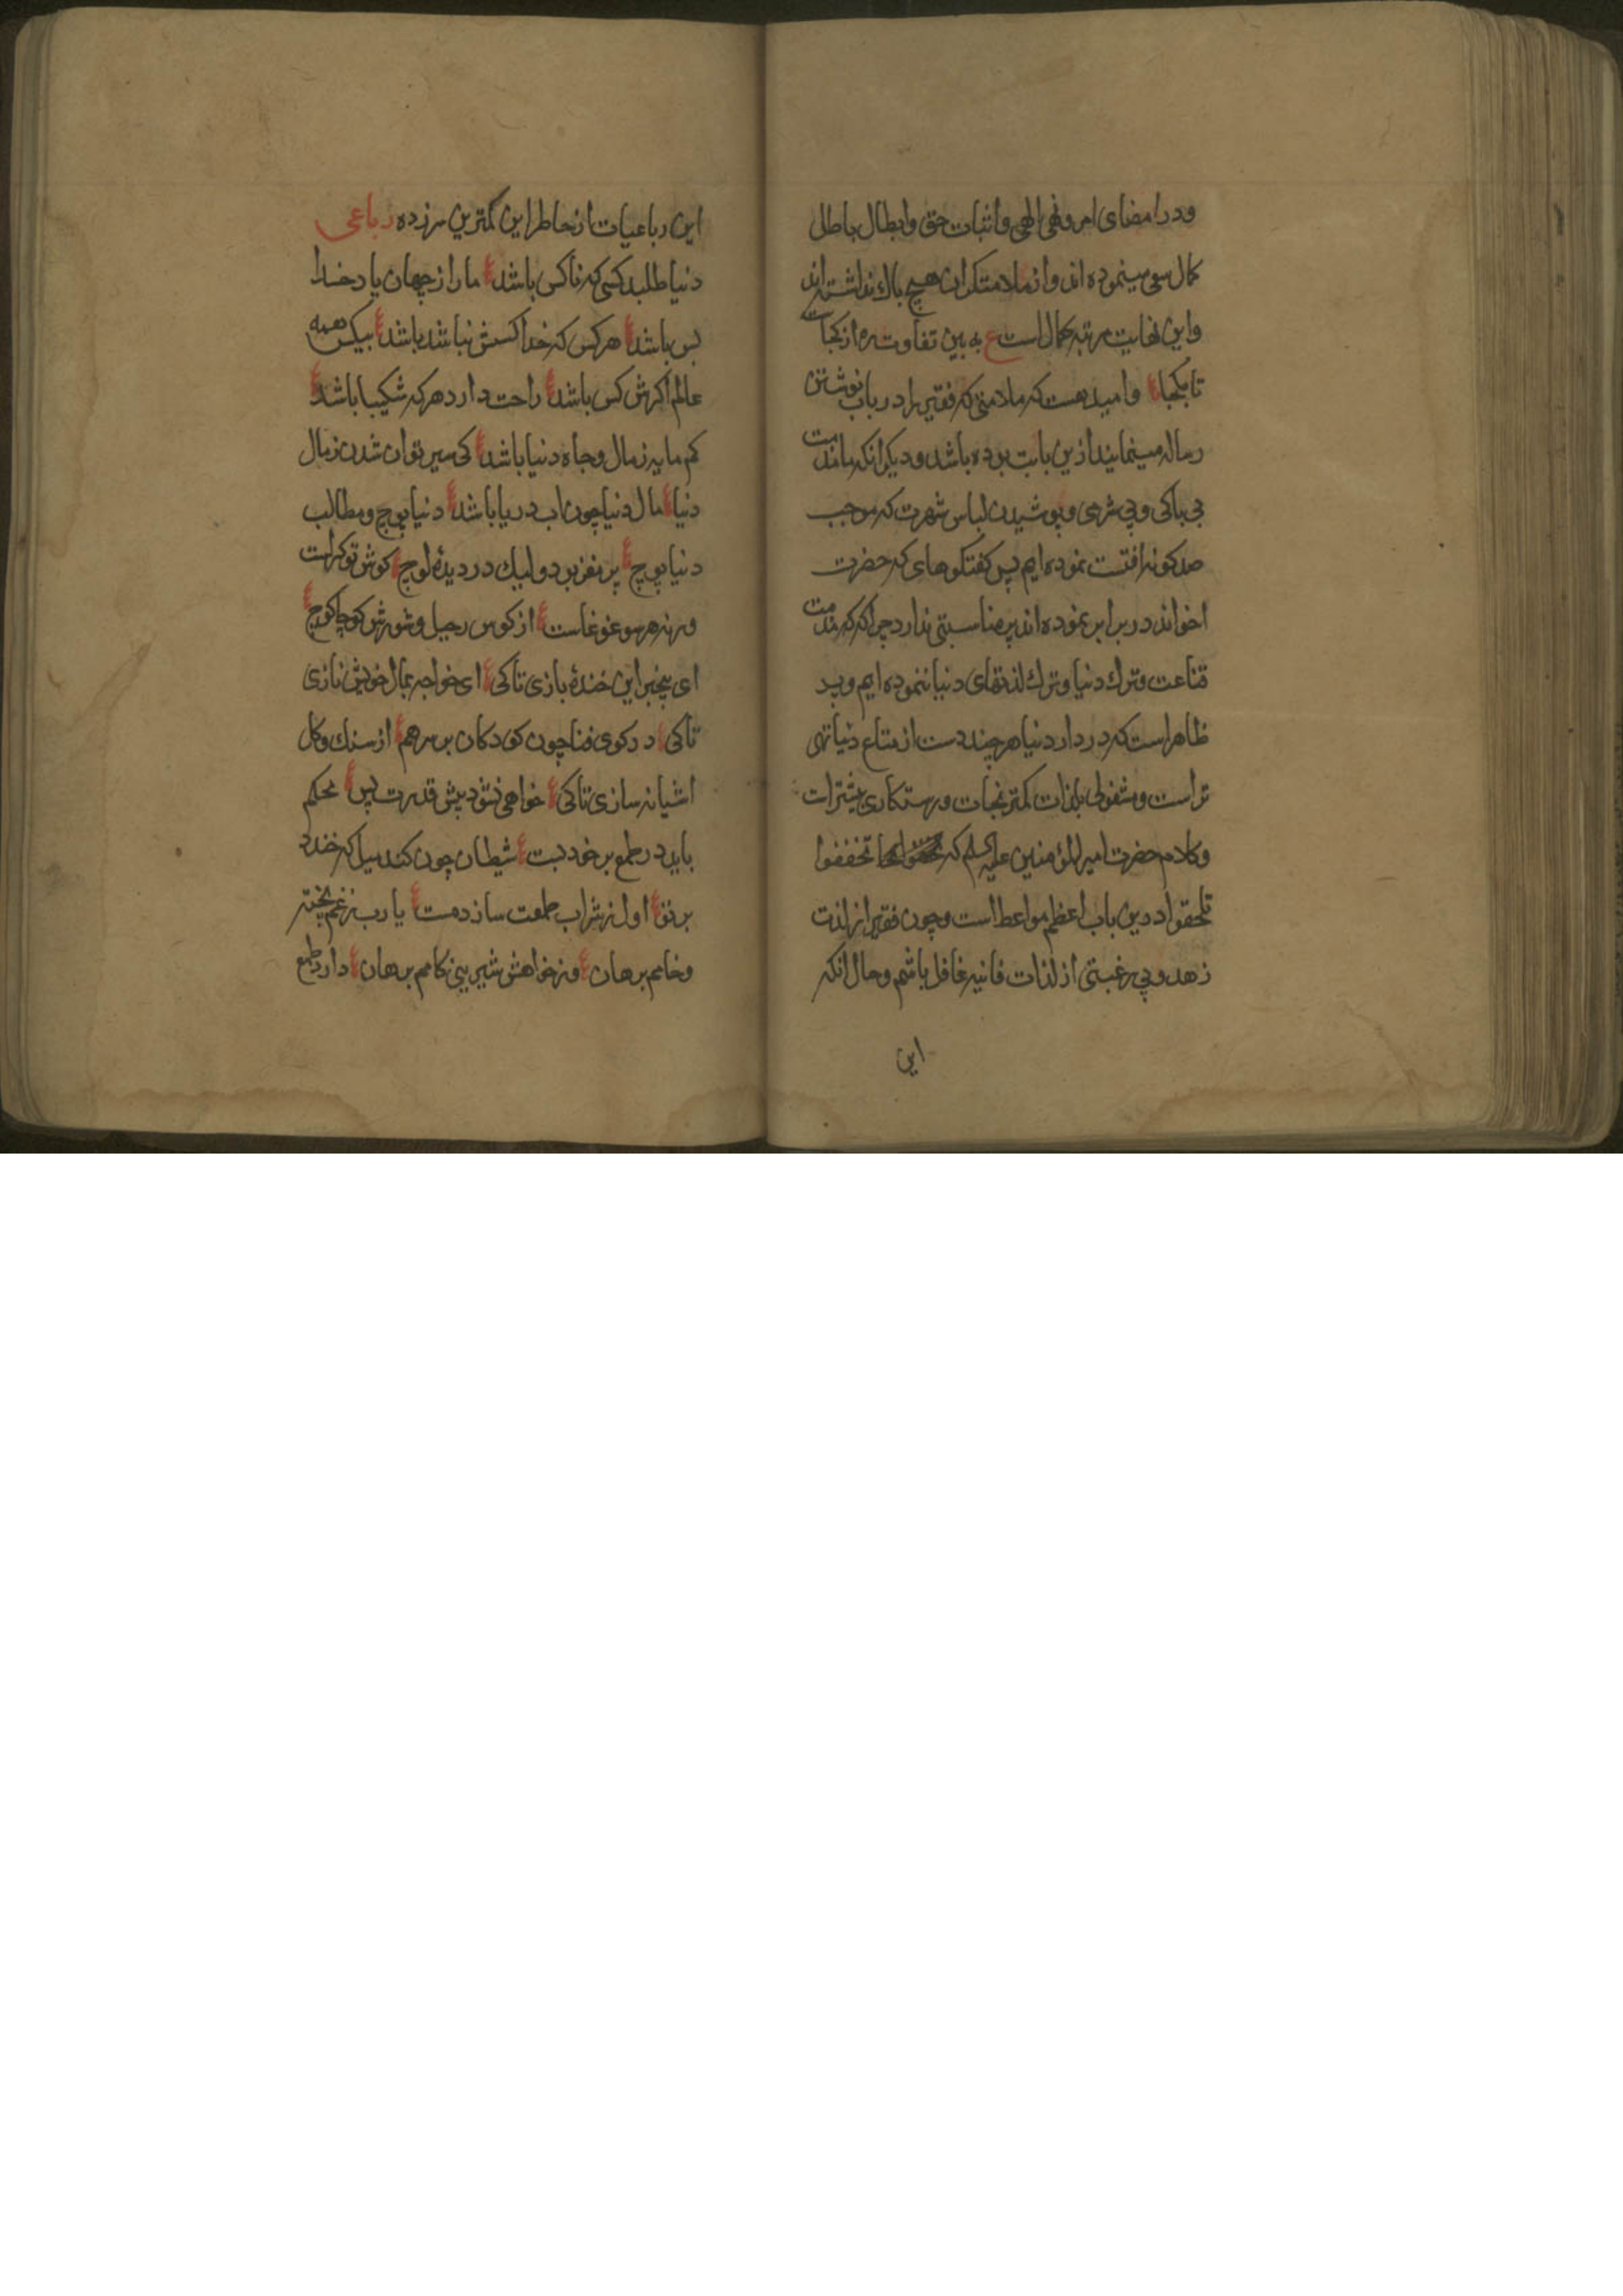 ودر امضای امر ونهی الهی واثبات حق وابطال باطل
کمال سعی مینموده اند واز ملامتکران هیچ باک نداشته اند
واین نهایت مرتبه کمال است ع به بین تفاوت ره از کجاست
تا بکجا ع وامید هست که ملامتی که فقیر را در باب نوشتن
رساله مینمایند ازین بابت بوده باشد ودیکر انکه ما مذمت
بی باکی وبی شرمی وپوشیدن لباس شهرت که موجب
صد کونه افتست نموده ایم پس کفتکوهای که حضرت
اخواند در برابر نموده اند پر مناسبتی ندارد چرا که که مذمت
قناعت وترک دنیا وترک لذتهای دنیا ننموده ایم وپر
ظاهراست که در دار دنیا هر چند دست از متاع دنیا تهی
تراست ومشغولی بلذات کمتر نجات ورستکاری بیشتراست
وکلام حضرت امیرالمؤمنین علیه السلم که تخففوا
تلحقوا درین باب اعظم مواعظ است وچون فقیر از لذت
زهد وبی رغبتی از لذات فانیه غافل باشم وحال انکه
این
این رباعیات از خاطر این کمترین سرزده رباعی
دنیا طلبد کسی که ناکس باشد ع ما را ز جهان یاد خدا
بس باشد ع هرکس که خدا کسش نباشد باشد ع بیکس همه
عالم اکرش کس باشد ع راحت دارد هرکه شکیبا باشد ع
کم مایه ز مال وجاه دنیا باشد ع کی سیر توان شدن ز مال
دنیا ع مال دنیا چون اب دریا باشد ع دنیا پوچ ومطالب
دنیا پوچ ع پر مغز بود ولیک در دیدهٔ لوچ ع کوش تو کراست
ورنه هر سو غوغاست ع از کوس رحیل وشورش کوچا کوچ ع
ای بیخبر این خندهٔ بازی تا کی ع ای خواجه بمال خویش نازی
تا کی ع در کوی فنا چون کودکان بر سر هم ع از سنک وکل
اشیانه سازی تا کی ع خواهی نشود پیش قدرت پس ع محکم
باید در طمع بر خود بست ع شیطان چون کند میل که خندد
بر تو ع اول ز شراب طمعت سازد مست ع یا رب ز غم پخته
وخامم برهان ع وز خواهش شیرینی کامم برهان ع دارد طمع